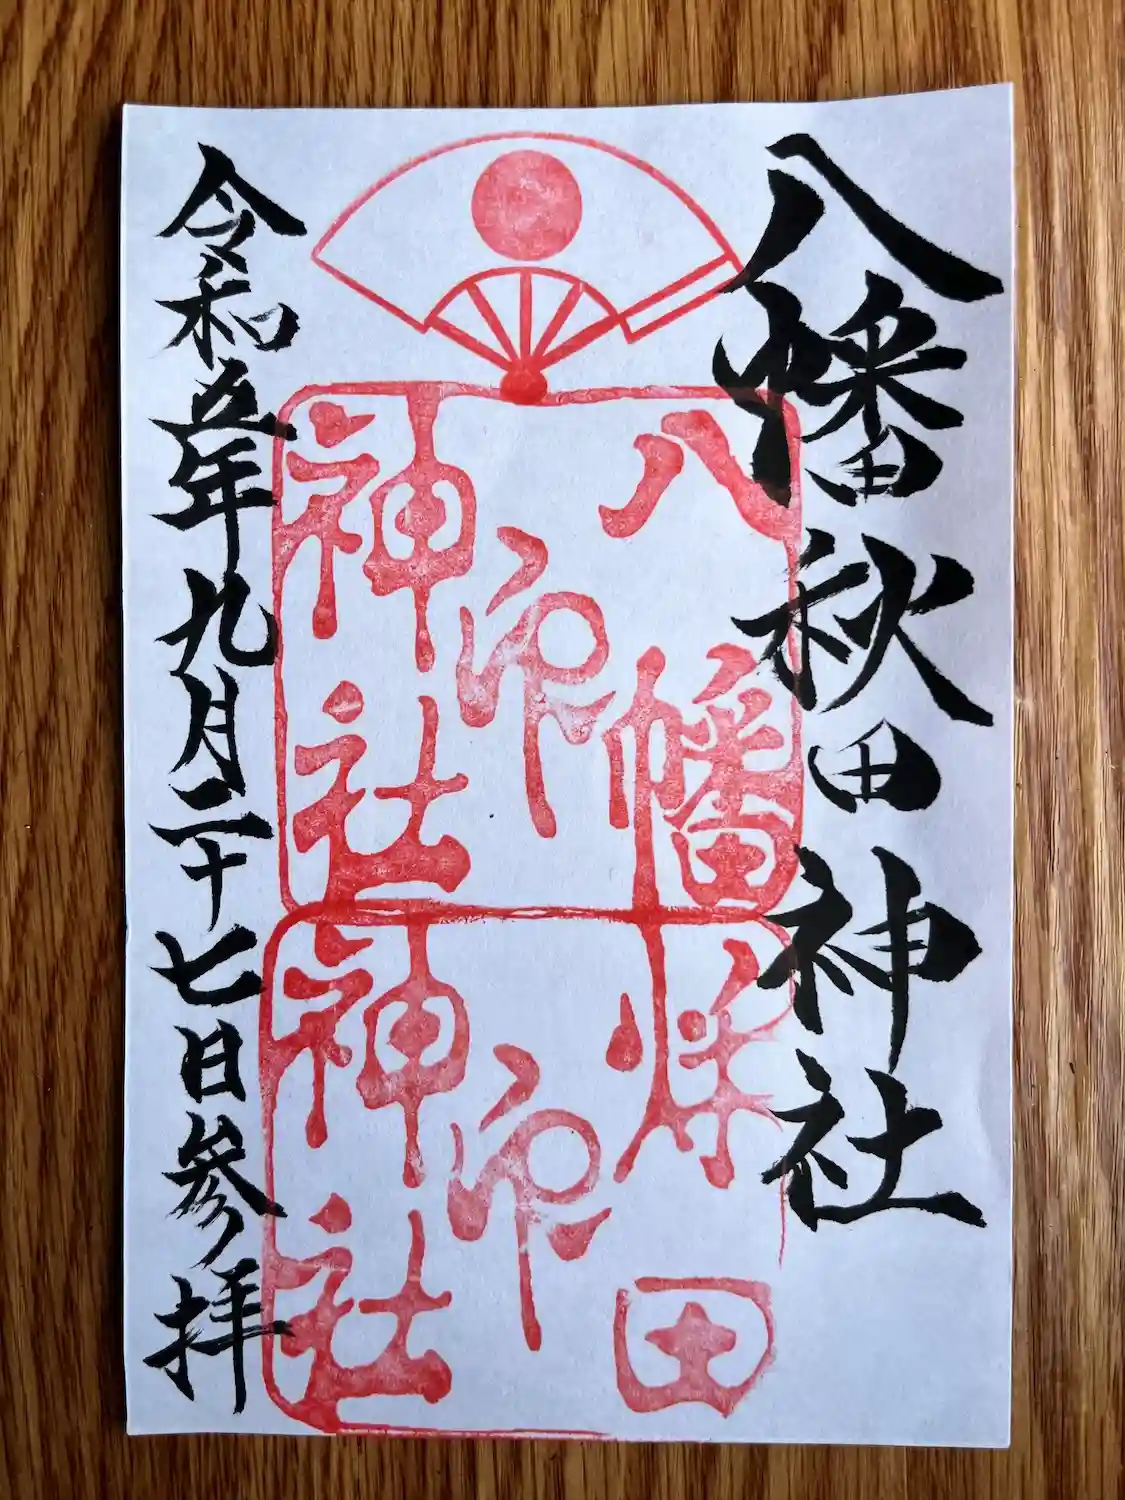 八幡秋田神社
八幡
神社
印
秋田
神社
印
令和五年九月二十七日参拝